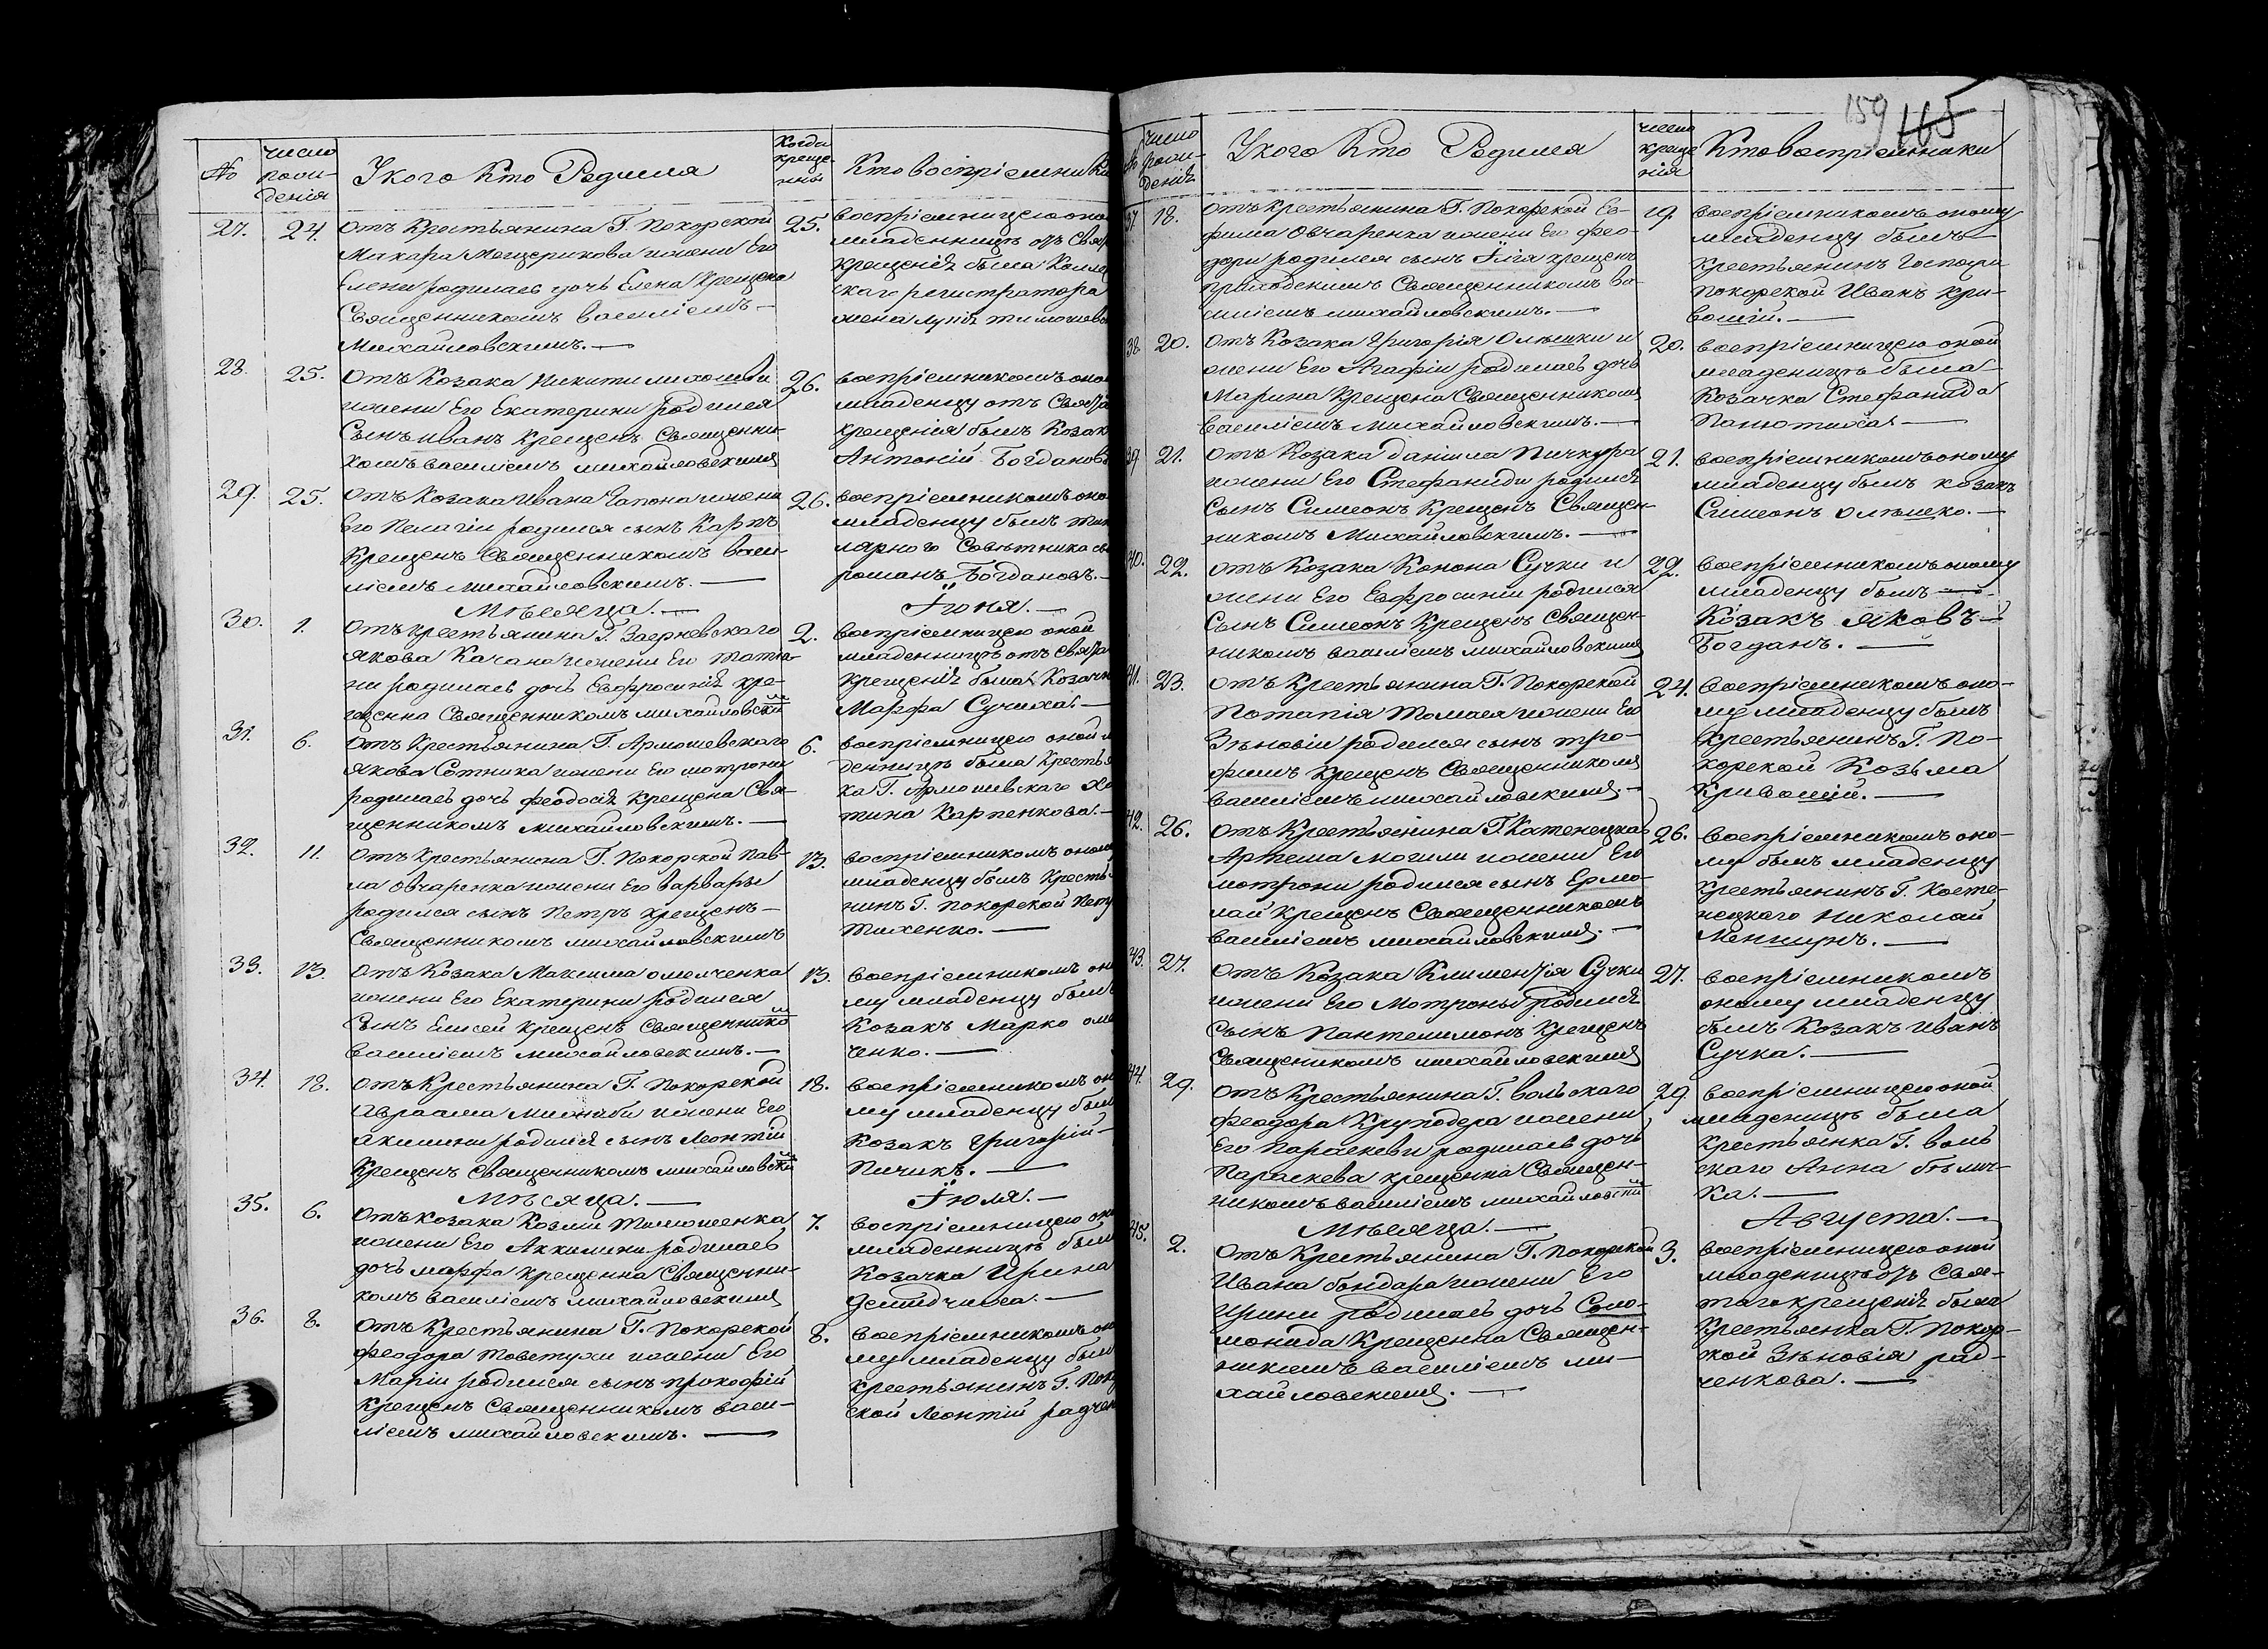 №
число рож-
денія
У кого Кто Родился
Когда
креще-
ны
Кто воспріемники
27.
24.
Отъ Крестьянина Г. Покорской
Макара Мещерикова жены Его
Елены родилась дочь Елена Крещена
Священникомъ Василіемъ
Михайловскимъ.
25.
воспріемницею оно
младенницы отъ Свят
крещенія была Колле
скаго регистратора
жена
28.
25.
Отъ Козака Никиты
жены Его Екатерины родился
Сынъ Иванъ Крещенъ Священни-
комъ Василіемъ Михайловскимъ
26.
воспріемникомъ оно
младенцу отъ Свята
крещенія былъ Козак
Антоній Богданов
29.
25.
Отъ Козака Ивана Гапона жены
Его Пелагіи родился сынъ Карпъ
Крещенъ Священникомъ Васи-
ліемъ Михайловскимъ.
26.
воспріемникомъ оно
младенцу былъ тит
лярного Совѣтника сы
романъ Богдановъ.
Мѣсяца.
Іюня.
30.
1.
Отъ Крестьянина Г. Заерневского
Якова Качана жены Его Татіа-
ны родилась дочь Евфросинія кре-
щенна Священникомъ Михайловски
2.
воспріемницею оной
младенницы отъ Свята
Крещенія была Козачк
Марфа Сучиха.
31.
6.
Отъ Крестьянина Г. Армошевского
Якова Сотника жены Его Мотроны
родилась дочь Феодосія Крещена Свя-
щенникомъ Михайловскимъ.
6.
воспріемницею оной м
денницы была Крестья
ка Г. Армошевского Х
тина Карпенкова.
32.
11.
Отъ Крестьянина Г. Покорской Пав-
ла Овчаренка жены Его Варвары
родился сынъ Петръ крещенъ
Священникомъ Михайловскимъ
13.
воспріемникомъ оном
младенцу былъ Кресть
нинъ Г. Покорской Пет
Тихенко.
33.
13
Отъ Козака Максима Омелченка
жены Его Екатерины родился
Сынъ Елисей Крещенъ Священнико
Василіемъ Михайловскимъ.
13.
воспріемникомъ он
му младенцу былъ
Козакъ Марко оме
ченко.
34.
18.
Отъ Крестьянина Г. Покорской
Авраама жены Его
Акилины родился сынъ Леонтій
Крещенъ Священникомъ Михайловски
18.
воспріемникомъ он
му младенцу был
Козакъ Григорій
Пичикъ.
Мѣсяца.
Іюля.
35.
6.
Отъ Козака Козмы Тимошенка
жены Его Аккилины родилась
дочь Марфа Крещенна Священни-
комъ Василіемъ Михайловскимъ
7.
воспріемницею он
младенницы был
Козачка Ирина
36.
8.
Отъ Крестьянина Г. Покорской
Феодора Товстухи жены Его
Маріи родился сынъ Прокофій
Крещенъ Священникомъ Васи-
ліемъ Михайловскимъ.
8.
воспріемникомъ он
му младенцу был
крестьянинъ Г. Пок
ской Леонтій радчен
159 165
№
число
рож-
денія
У кого Кто Родился
число
креще
нія
Кто воспріемники
37.
18.
Отъ Крестьянина Г. Покорской Ев-
фима Овчаренка жены Его Фео-
доры родился сынъ Ілія крещенъ
приходскимъ Священникомъ Ва-
силіемъ Михайловскимъ.
19.
воспріемникомъ оному
младенцу былъ
крестьянинъ Госпожи
Покорской Иванъ Кри-
вошій.
38.
20.
Отъ Козака Григорія Олѣшки и
жены Его Агафіи родилась дочь
Марина Крещена Священникомъ
Василіемъ Михайловскимъ.
20.
воспріемницею оной
младеницы была
Козачка Стефанида
Панютиха
39
21.
Отъ Козака Даніила Пичкура
жены Его Стефаниды родился
Сынъ Симеонъ Крещенъ Священ-
никомъ Михайловскимъ.
21.
воспріемникомъ оному
младенцу былъ козакъ
Симеонъ Олѣшко.
40.
22.
Отъ Козака Конона Сучки и
жены Его Евфросиніи родился
Сынъ Симеонъ Крещенъ Священ-
никомъ Василіемъ Михайловскимъ
22.
воспріемникомъ оному
младенцу былъ
Козакъ Яковъ
Богданъ.
41.
23.
Отъ Крестьянина Г. Покорской
Потапія жены Его
Зѣновіи родился сынъ Тро-
фимъ Крещенъ Священникомъ
Василіемъ Михайловскимъ.
24.
воспріемникомъ оно-
му младенцу былъ
крестьянинъ Г. По-
корской Козьма
Кривошій.
42.
26.
Отъ Крестьянина Г. Костенецкаго
Артема Могили жены Его
Мотроны родился сынъ Ермо-
лай Крещенъ Священникомъ
Василіемъ Михайловскимъ.
26.
воспріемникомъ оно-
му былъ младенцу
крестьянинъ Г. Косте-
нецкого Николай
43.
27.
Отъ Козака Климентія Сучки
жены Его Мотроны родился
Сынъ Пантелимонъ Крещенъ
Священиком Михайловскимъ
27.
воспріемникомъ
оному младенцу
былъ Козакъ Иванъ
Сучка.
44.
29.
Отъ Крестьянина Г. Вольского
Феодора Круподера жены
Его Параскевы родилась дочь
Параскева крещенна Священ-
никомъ Василіемъ Михайловски
29
воспріемницею оной
младеницы была
Крестьянка Г. Воль
скаго Анна бѣлич-
ка.
Мѣсяца.
Августа.
45.
2.
Отъ Крестьянина Г. Покорской
Ивана Бондара жены Его
Ирины родилась дочь Соло-
монида Крещенна Священ-
никомъ Василіемъ Ми-
хайловскимъ.
3.
воспріемницею оной
младеницы отъ Свя-
таго крещенія была
Крестьянка Г. Покор-
кой Зѣновія рад-
ченкова.